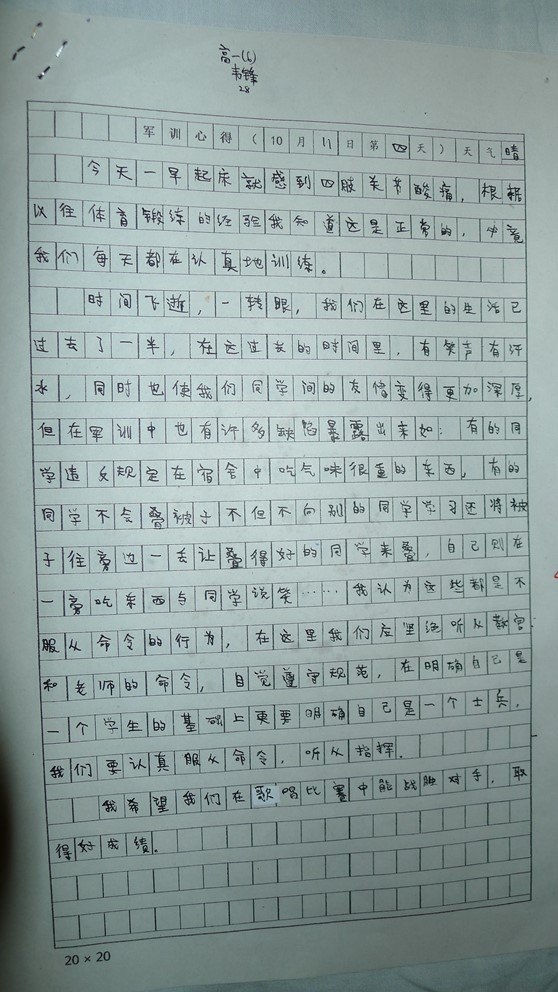 高一(6)
韦锋
28
军训心得(10月11日第四天)天气晴
今天一早起床就感到四肢关节酸痛，根据
以往体育锻练的经验我知道这是正常的，毕竟
我们每天都在认真地训练。
时间飞逝，一转眼，我们在这里的生活已
过去了一半，在这过去的时间里，有笑声有汗
水，同时也使我们同学间的友情变得更加深厚，
但在军训中也有许多缺陷暴露出来如：有的同
学违反规定在宿舍中吃气味很重的东西，有的
同学不会叠被子不但不向别的同学学习还将被
子往旁边一丢让叠得好的同学来叠，自己则在
一旁吃东西与同学说笑……我认为这些都是不
服从命令的行为，在这里我们应坚绝听从教官
和老师的命令，自觉遵守规范，在明确自己是
一个学生的基础上更要明确自己是一个士兵，
我们要认真服从命令，听从指挥.
我希望我们在歌唱比赛中能战胜对手，取
得好成绩。
20×20